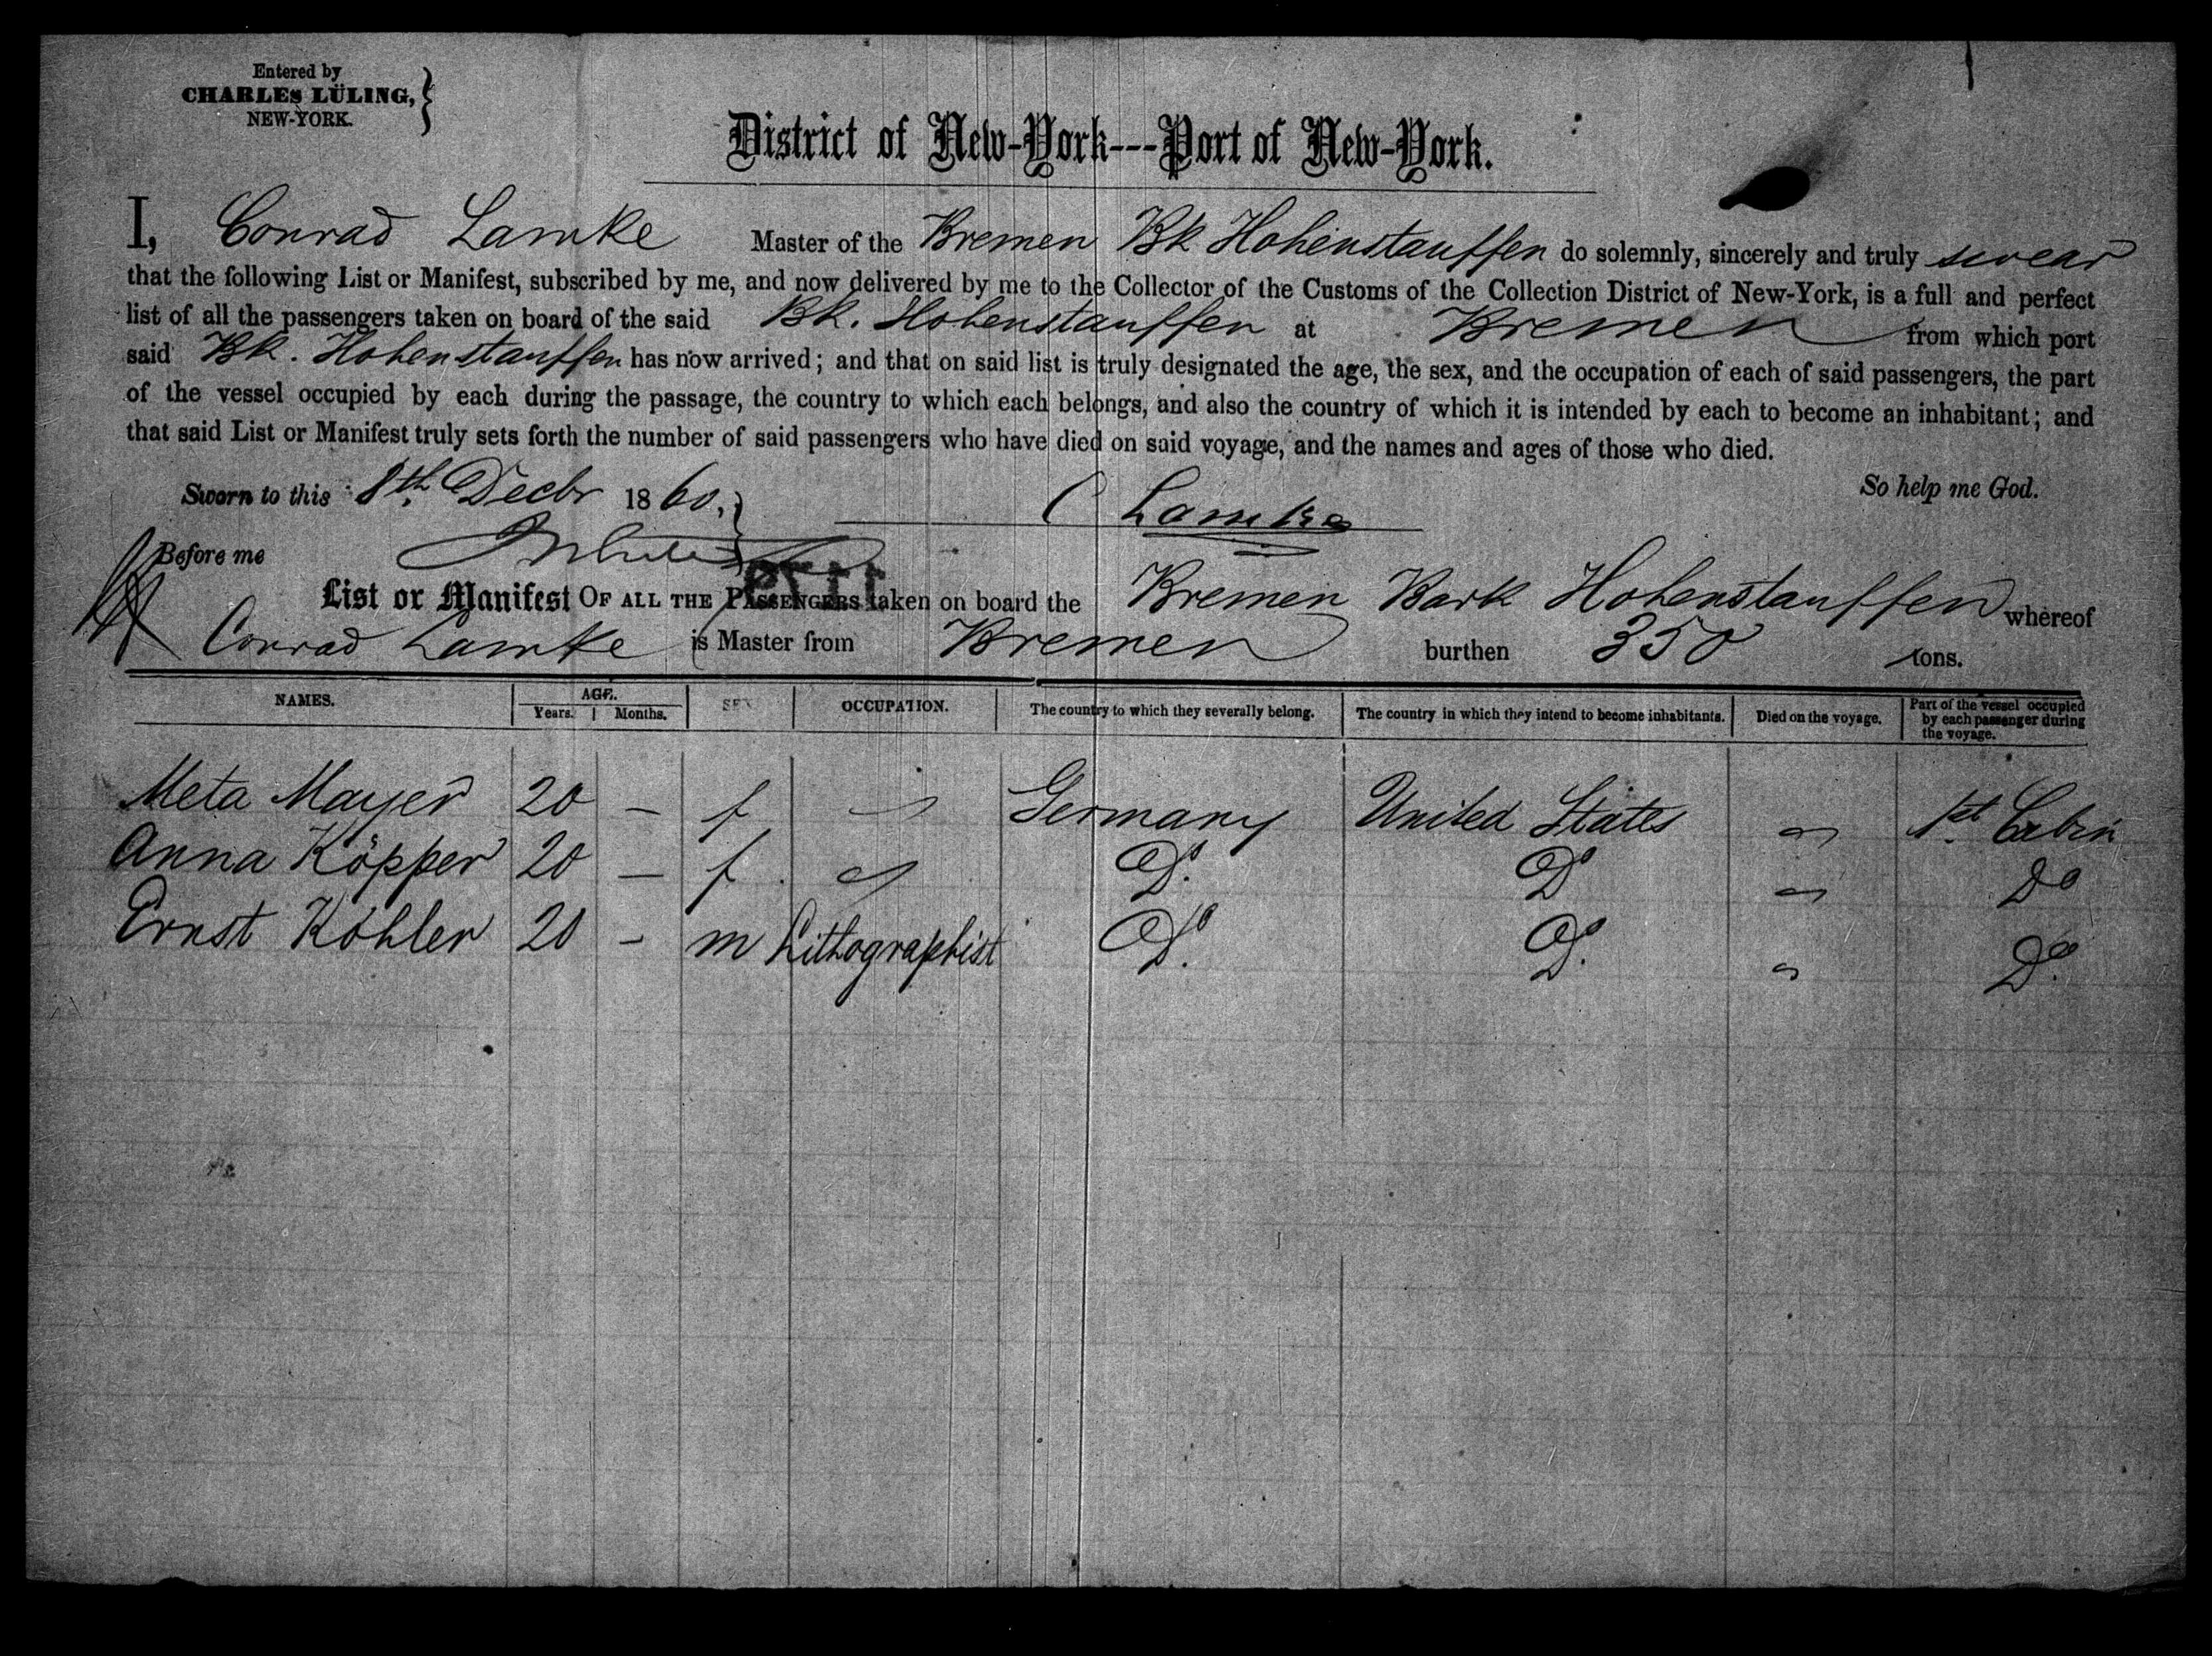 Entered by
CHARLES LÜLING,
NEW-YORK.
District of New-York---Port of New-York.
I, Conrad Lamke Master of the Bremen Bk Hohenstauffen do solemnly, sincerely and truly swear
that the following List or Manifest, subscribed by me, and now delivered by me to the Collector of the Customs of the Collection District of New-York, is a full and perfect
list of all the passengers taken on board of the said Bk. Hohenstauffen at Bremen from which port
said Bk. Hohenstauffen has now arrived; and that on said list is truly designated the age, the sex, and the occupation of each of said passengers, the part
of the vessel occupied by each during the passage, the country to which each belongs, and also the country of which it is intended by each to become an inhabitant; and
that said List or Manifest truly sets forth the number of said passengers who have died on said voyage, and the names and ages of those who died.
Sworn to this 8th. Decbr 1860. C Lamke So help me God.
Before me
List or Manifest OF ALL THE PASSENGERS taken on board the Bremen Bark Hohenstauffen whereof
Conrad Lamke is Master from Bremen burthen 350 tons.
NAMES. AGE. Years. Months. SEX OCCUPATION. The country to which they severally belong. The country in which they intend to become inhabitants. Died on the voyage. Part of the vessel occupied by each passenger during the voyage.
Meta Mayer 20 — f Germany United States 1st. Cabin
Anna Köpper 20 — f Do. Do Do
Ernst Kohler 20 - m Lithographist Do. Do. Do.